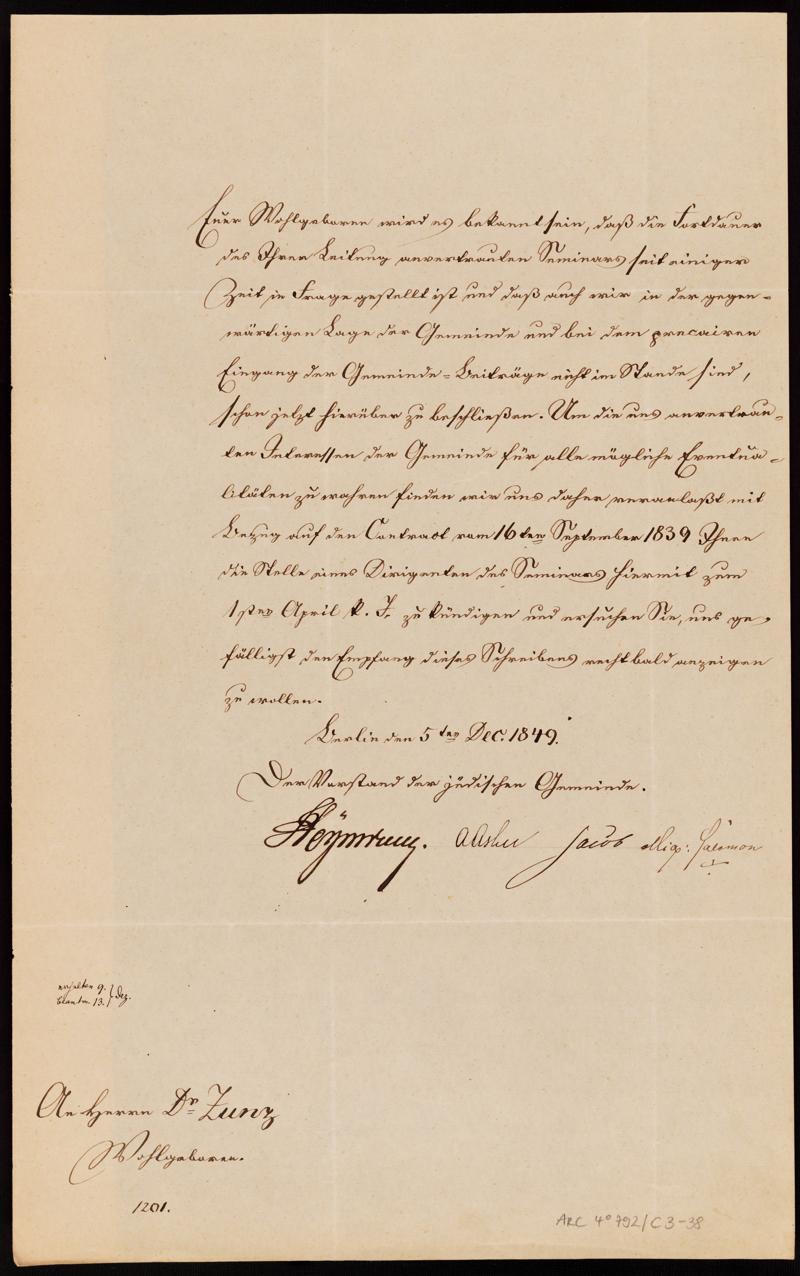 Euer Wohlgeboren wird es bekannt sein, daß die Fortdauer
des Ihrer Leitung anvertrauten Seminars seit einiger
Zeit in Frage gestellt ist und daß auch wir in der gegen-
wärtigen Lage der Gemeinde und bei dem precairen
Eingang der Gemeinde-Beiträge nicht im Stande sind,
schon jetzt hierüber zu beschließen. Um die uns anvertrau-
ten Interessen der Gemeinde für alle mögliche Eventua-
litäten zu wahren finden wir uns daher veranlaßt mit
Bezug auf den Contract vom 16ten September 1839 Ihnen
die Stelle eines Dirigenten des Seminars hiermit zum
1sten April k. J. zu kündigen und ersuchen Sie, uns ge-
fälligst den Empfang dieses Schreibens recht bald anzeigen
zu wollen.
Berlin den 5ten Dec. 1849.
Der Vorstand der jüdischen Gemeinde.
A Asher Jacob Salomon
erhalten 9. } Dez.
beantw. 13.
An Herrn Dr. Zunz
Wohlgeboren.
1201.
ARC 4° 792/C3-38